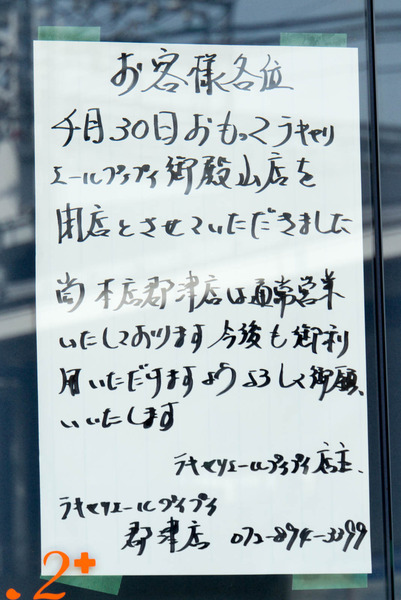 お客様各位
4月30日をもってラキャリ
エールプイプイ御殿山店を
閉店とさせていただきました
尚本店郡津店は通常営業
いたしております今後も御利
用いただけますようよろしく御願
いいたします
ラキャリエールプイプイ店主
ラキャリエールプイプイ
郡津店 072-894-3399
.2+